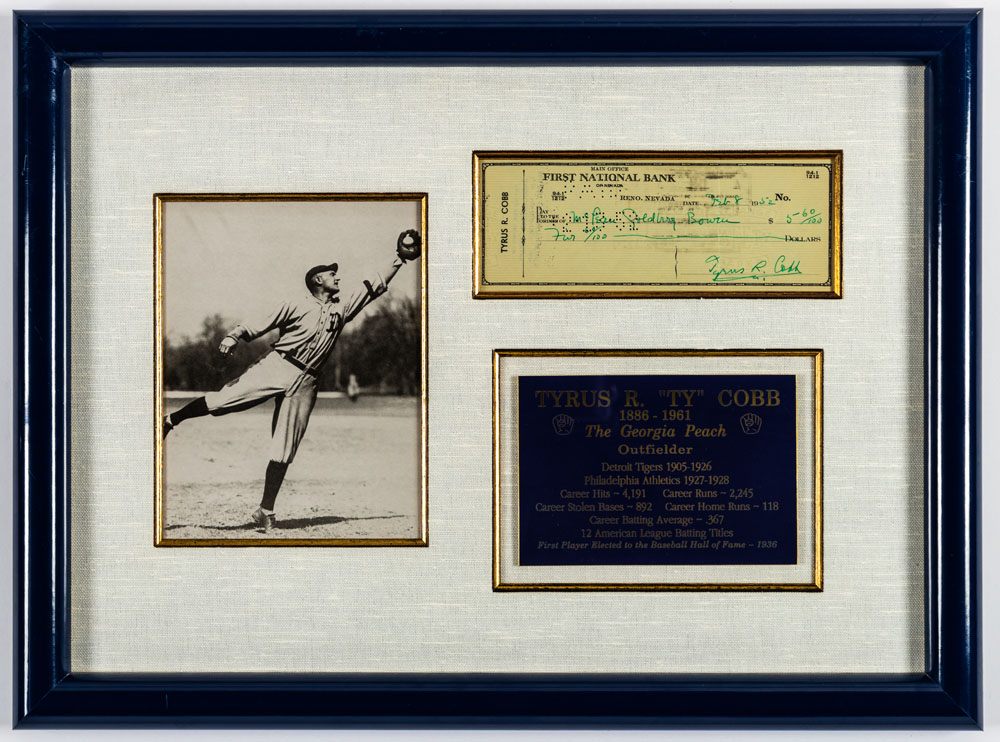 TYRUS R. COBB
MAIN OFFICE
FIRST NATIONAL BANK
OF NEVADA
94-1
1212
94-1
1212
RENO, NEVADA DATE Feb 8 1952 No.
PAY TO THE ORDER OF Goldberg Bowen $ 5 60/100
Five 60/100 DOLLARS
Tyrus R. Cobb
TYRUS R. "TY" COBB
1886 - 1961
The Georgia Peach
Outfielder
Detroit Tigers 1905-1926
Philadelphia Athletics 1927-1928
Career Hits ~ 4,191 Career Runs ~ 2,245
Career Stolen Bases ~ 892 Career Home Runs ~ 118
Career Batting Average ~ .367
12 American League Batting Titles
First Player Elected to the Baseball Hall of Fame ~ 1936